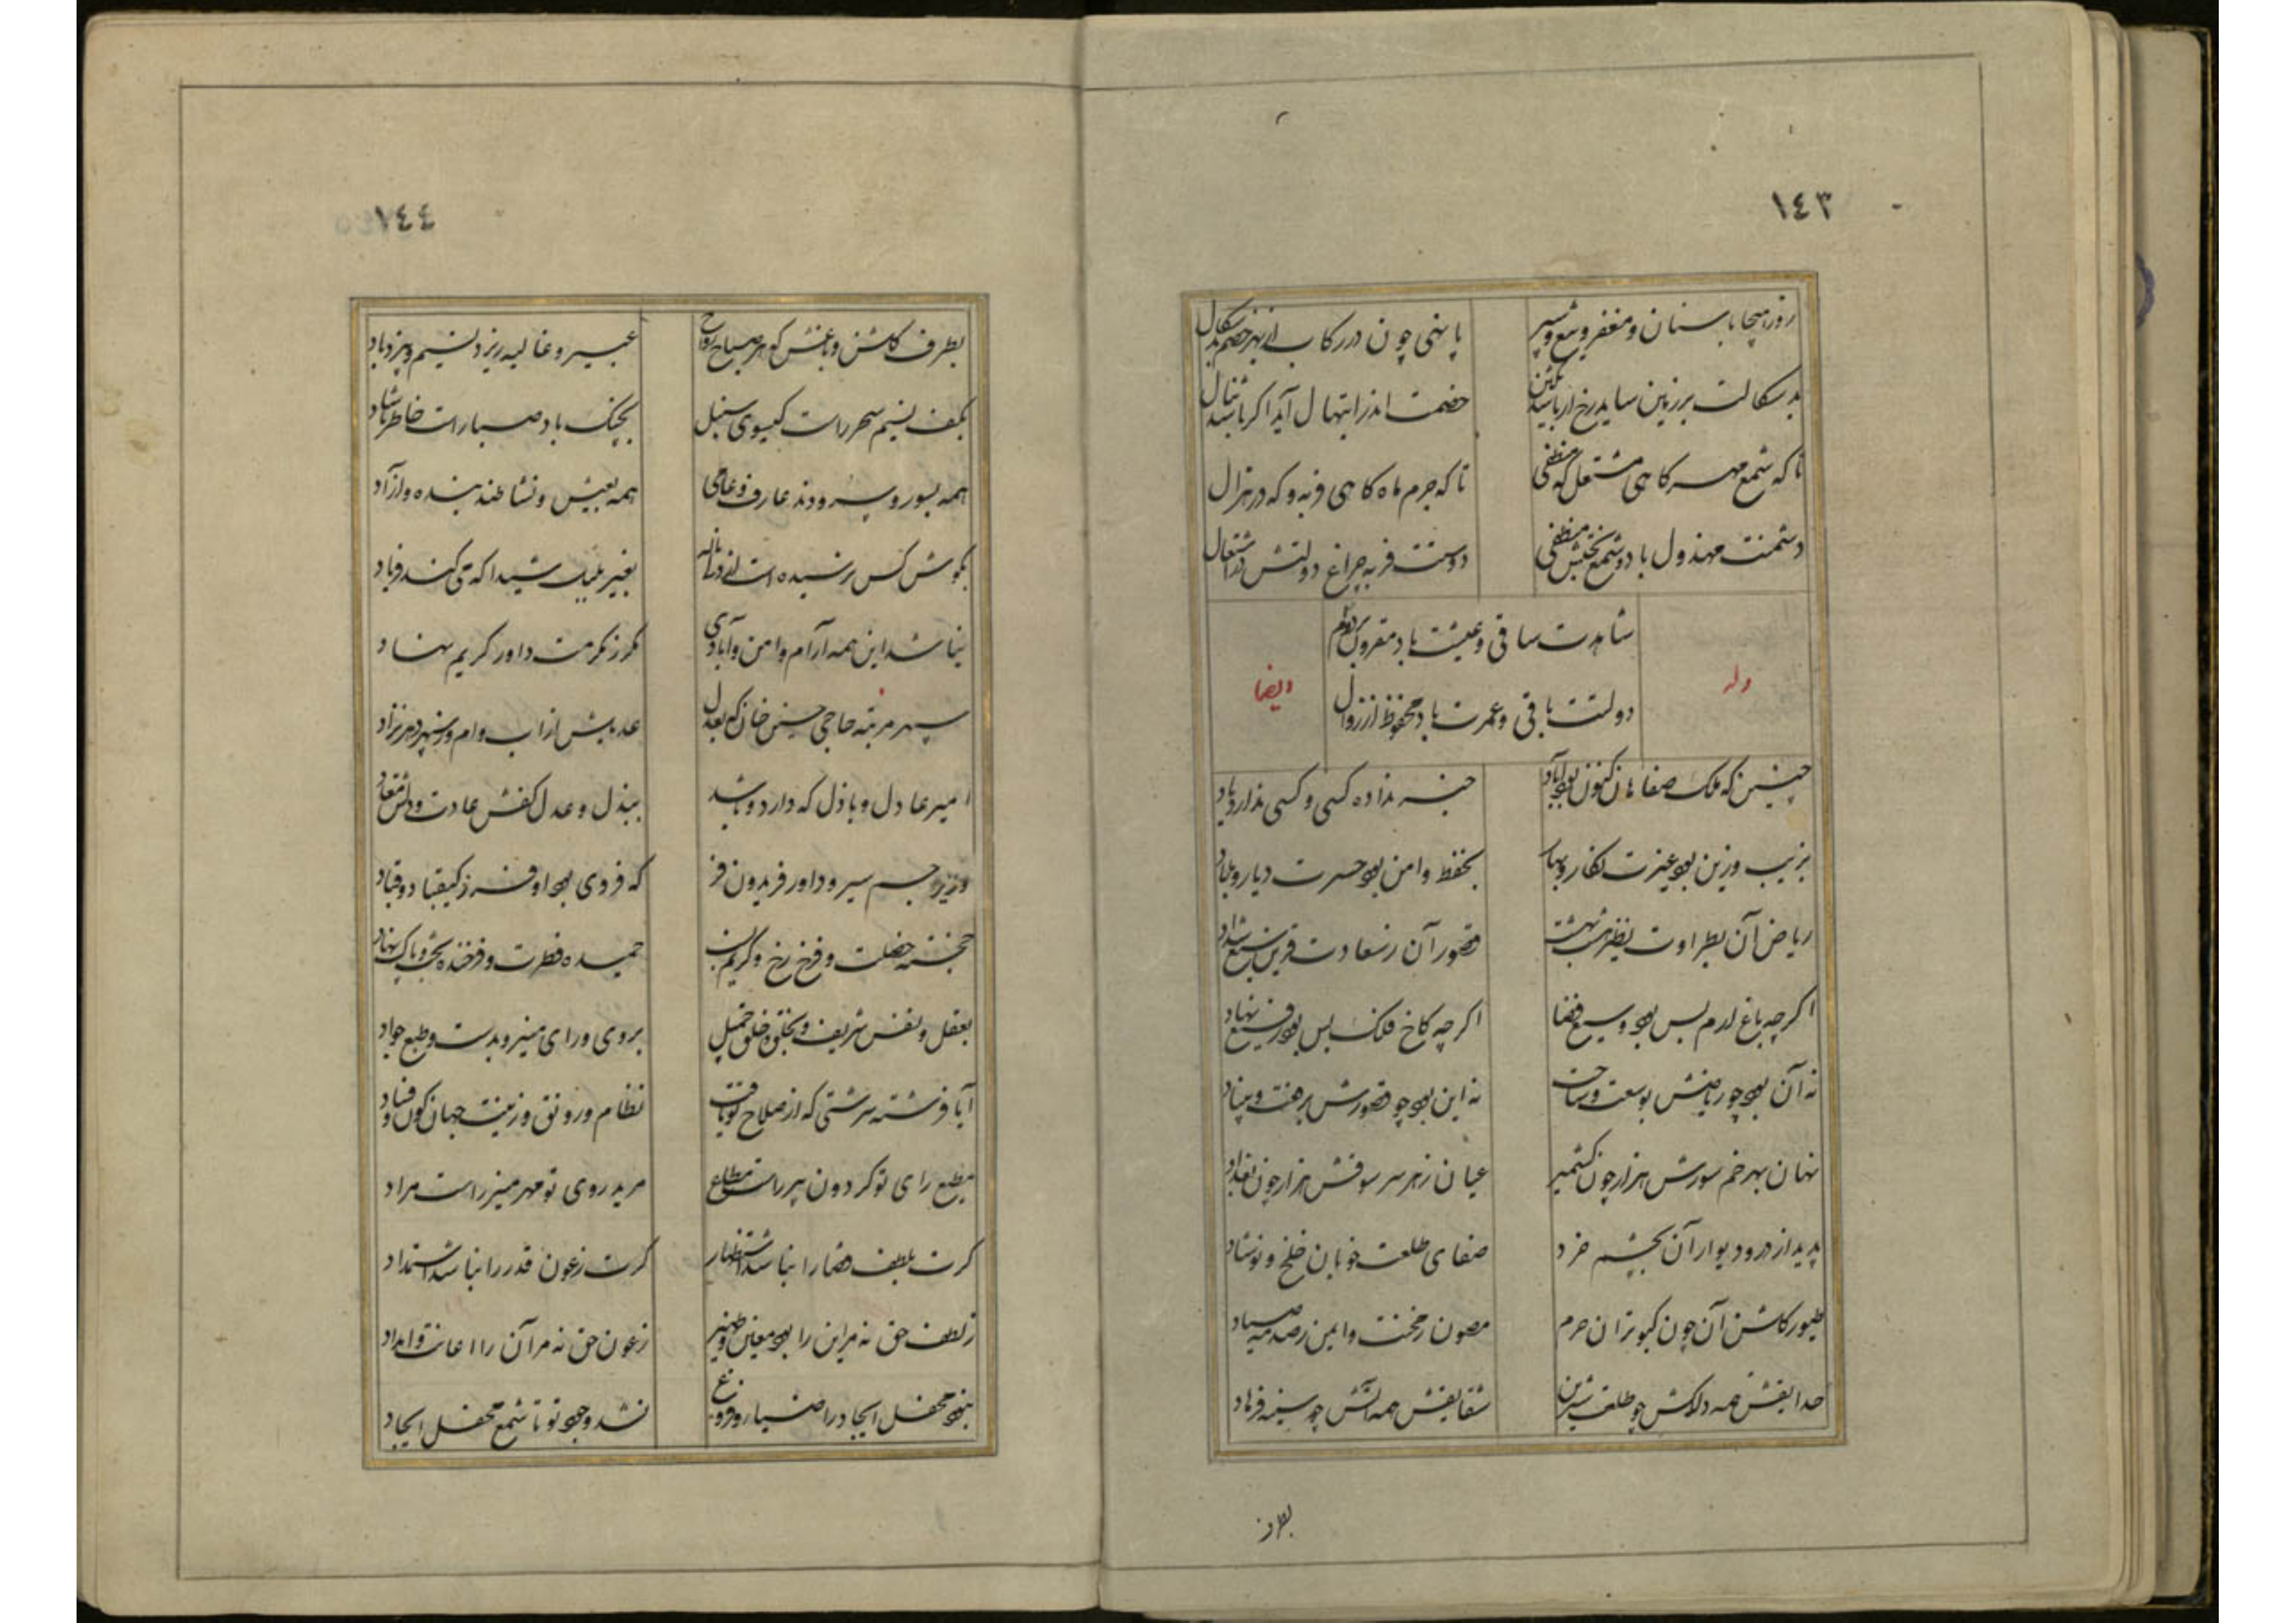 ١٤٣
روز هیجا با سنان و مغفر و تیغ و سپر
پا نهی چون در رکاب از بهر خصم بدسگال
بدسگالت بر زمین ساید رخ ار باشد
خصمت اندر ابتهال آید اگر باشد
تا که شمع مهر گاهی مشتعل گه منطفی
تا که جرم ماه گاهی فربه و گه در هزال
دشمنت مهزول باد و شمع بختش منطفی
دوستت فربه چراغ دولتش در اشتعال
شاهدت ساقی و عیشت باد مقرون
دولتت باقی و عمرت باد محفوظ از زوال
وله
ایضا
چنین که ملک صفاهان کنون بود آباد
خبر نداده کسی و کسی ندارد یاد
بزیب و زین بود غیرت نگار و بهار
بحفظ و امن بود حسرت دیار و بلاد
ریاض آن بطراوت نظیر هشت بهشت
قصور آن ز سعادت قرین سبع شداد
اگرچه باغ ارم بس بود وسیع فضا
اگرچه کاخ فلک بس بود رفیع نهاد
نه آن بود چو ریاضش بوسعت و ساحت
نه این بود چو قصورش برفعت و بنیاد
نهان بهر خم سورش هزار چون کشمیر
عیان ز هر سر سوقش هزار چون بغداد
پدید از در و دیوار آن بچشم خرد
صفای طلعت خوبان خلخ و نوشاد
طیور گلشن آن چون کبوتران حرم
مصون ز محنت و ایمن ز صدمه صیاد
حدایقش همه دلکش چو طلعت شیرین
شقایقش همه آتش چو سینه فرهاد
بطرف
١٤٤
بطرف گلشن و باغش که هر صباح و رواح
عبیر و غالیه ریزد نسیم و بیزد باد
بکف نسیم سحر راست گیسوی سنبل
بچنگ باد صبا راست خاطر شاد
همه بسور و سرودند عارف و عامی
همه بعیش و نشاطند بنده و آزاد
بگوش کس نرسیده است از دری ناله
بغیر بلبل شیدا که می کند فریاد
نباشد این همه آرام و امن و آبادی
مگر ز مکرمت داور کریم نهاد
سپهر مرتبه حاجی حسین خان که بعدل
عدیلش از اب و ام در سپهر دهر نزاد
امیر عادل و باذل که دارد و باشد
ببذل و عدل کفش عادت و دلش معتاد
وزیر جم سیر و داور فریدون فر
که فر وی بود افزون ز کیقباد و قباد
خجسته خصلت و فرخ رخ و کریم
حمیده فطرت و فرخنده بخت و پاک نهاد
بعقل و نفس شریف و بخلق و خلق جمیل
بروی و رای منیر و بدست و طبع جواد
آیا فرشته سرشتی که از صلاح تو یافت
نظام و رونق و زینت جهان کون و فساد
مطیع رای تو گردون پیر راست مطاع
مرید روی تو مهر منیر راست مراد
گرت بلطف قضا را نباشد استظهار
گرت ز عون قدر را نباشد استمداد
ز لطف حق نه مر این را بود معین و ظهیر
ز عون حق نه مر آن را اعانت و امداد
نبود محفل ایجاد را ضیا و فروغ
نشد وجود تو تا شمع محفل ایجاد